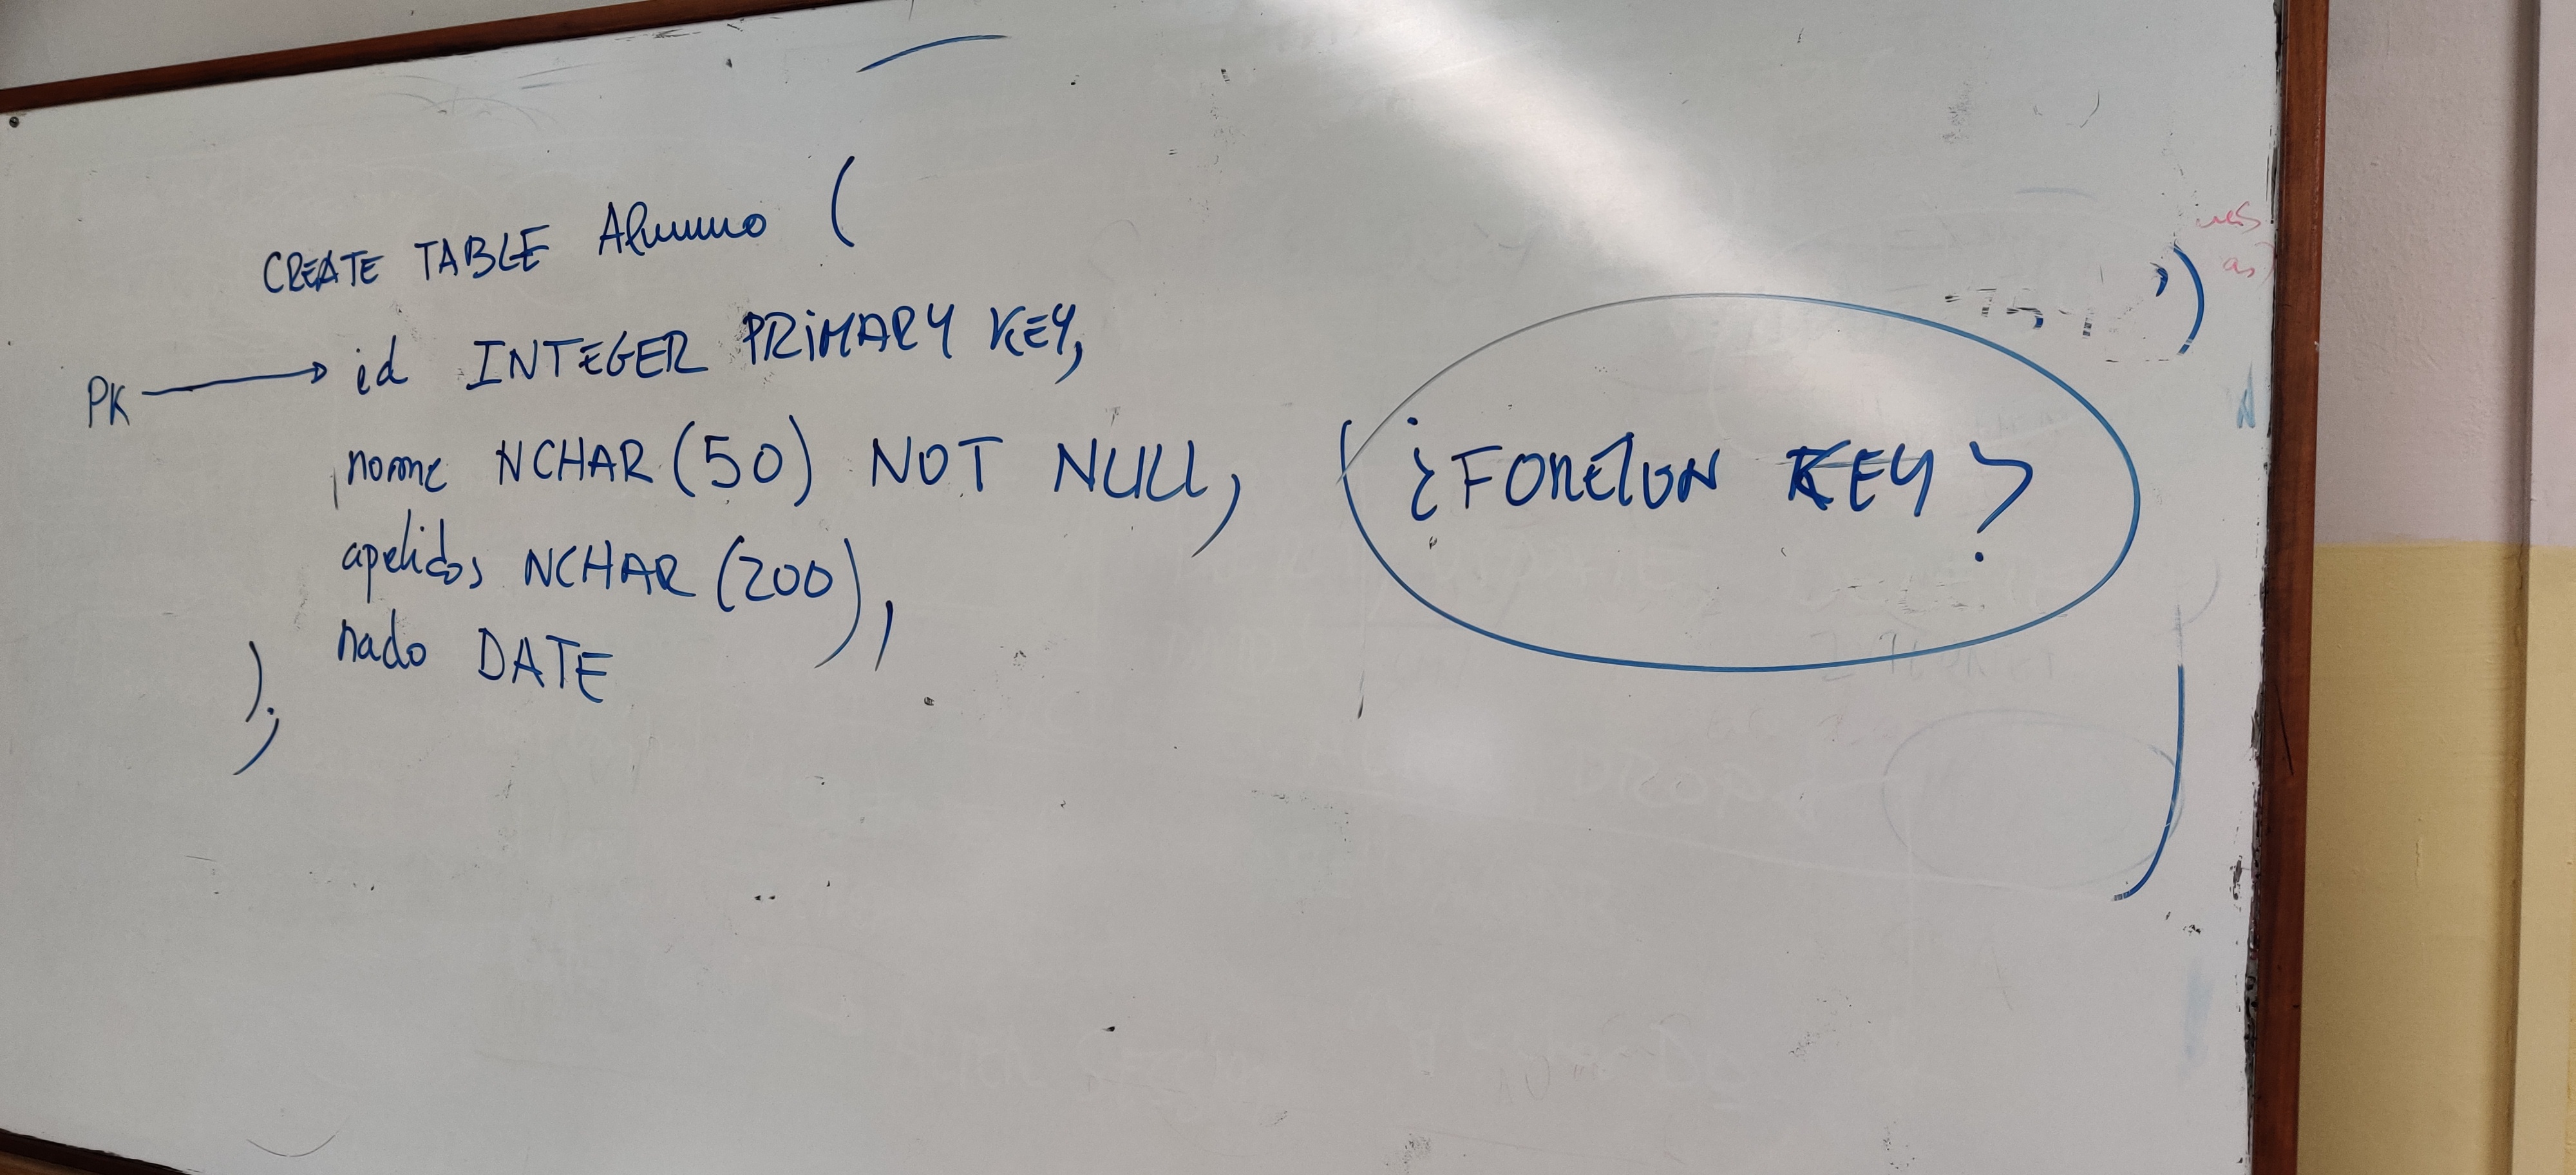 CREATE TABLE Alumno (
PK → id INTEGER PRIMARY KEY,
nome NCHAR (50) NOT NULL,
apelidos NCHAR (200),
nado DATE
);
¿FOREIGN KEY?